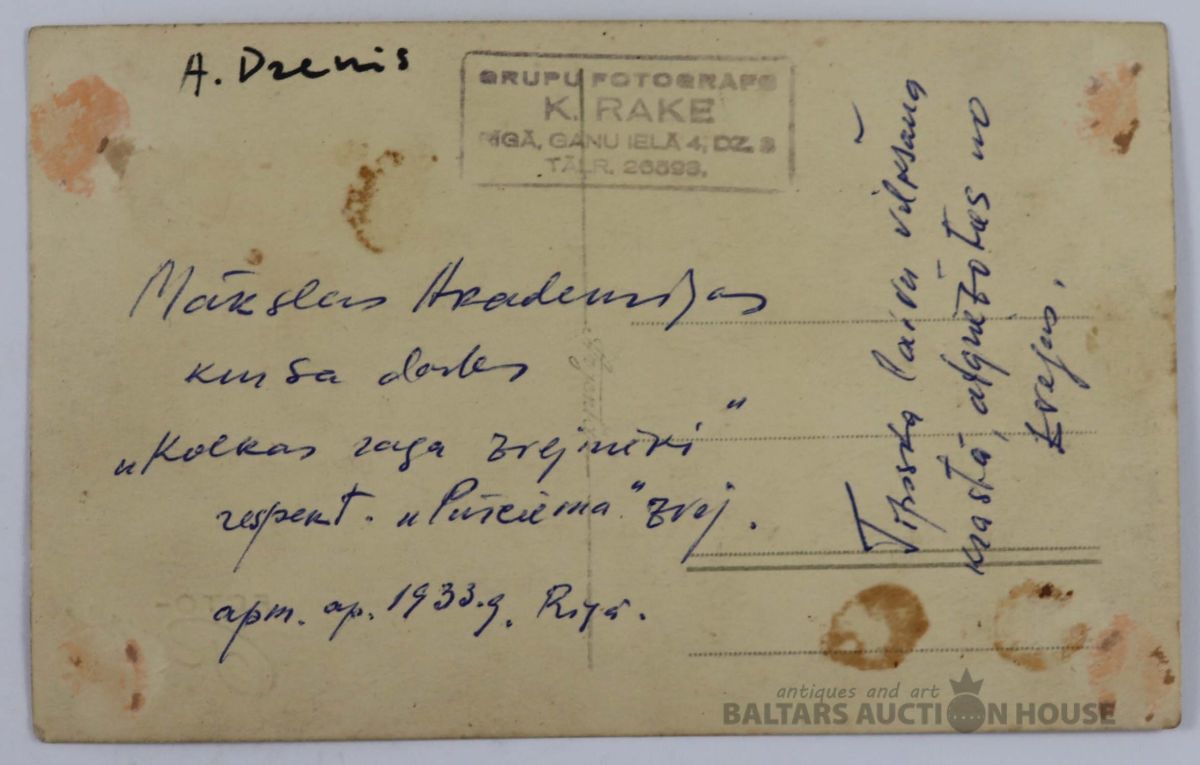 A. Dzenis
GRUPU FOTOGRAFS
K. RAKE
RĪGĀ, GANU IELĀ 4, DZ. 3
TĀLR. 26593.
Mākslas Akademijas
kursa darbs
„Kolkas raga zvejnieki"
respekt. „Pūrciema" zvej.
apm. ap. 1933.g. Rīgā.
Tipiska laivu vilkšana
krastā, atgriežoties no
zvejas.
antiques and art
BALTARS AUCTION HOUSE